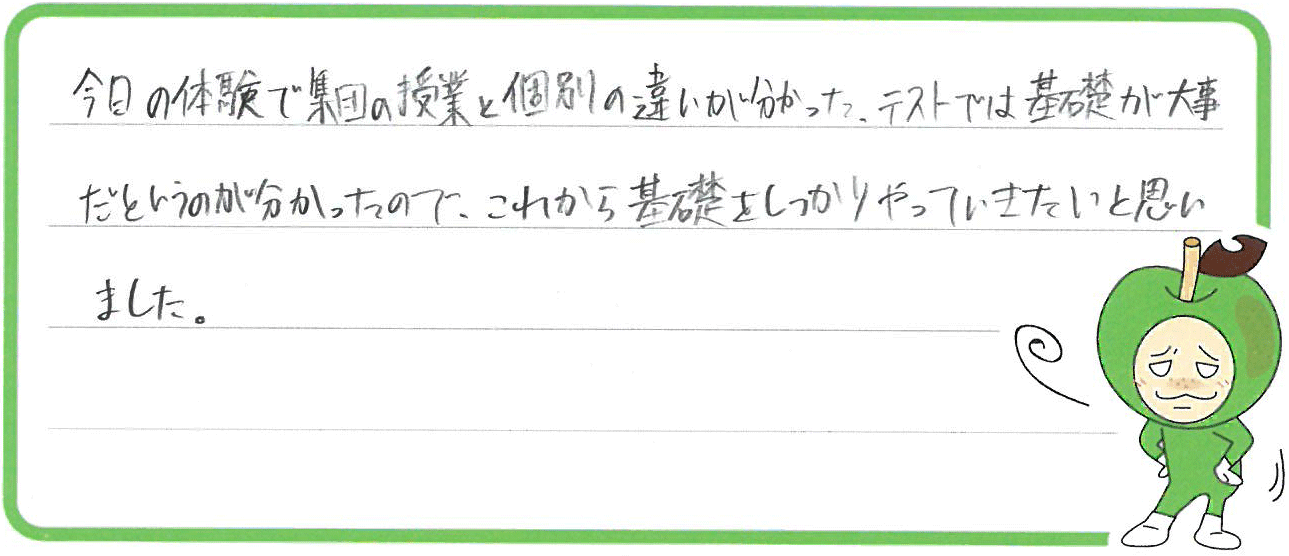 今日の体験で集団の授業と個別の違いが分かった、テストでは基礎が大事
だというのが分かったので、これから基礎をしっかりやっていきたいと思い
ました。